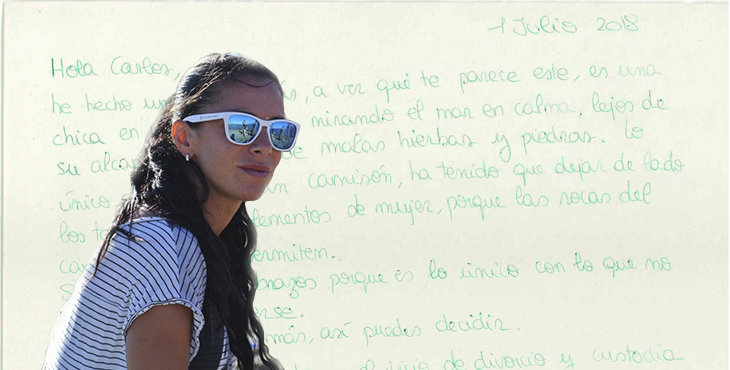 1 Julio 2018
Hola Carlos, ás, a ver qué te parece este, es una
he hecho un mirando el mar en calma, lejos de
chica en de malas hierbas y piedras. Lo
su alca un camisón, ha tenido que dejar de lado
único lementos de mujer, porque las rocas del
los ta ermiten.
ca nazos porque es lo único con lo que no
S rse.
más, así puedes decidir.
de divorcio y custodia